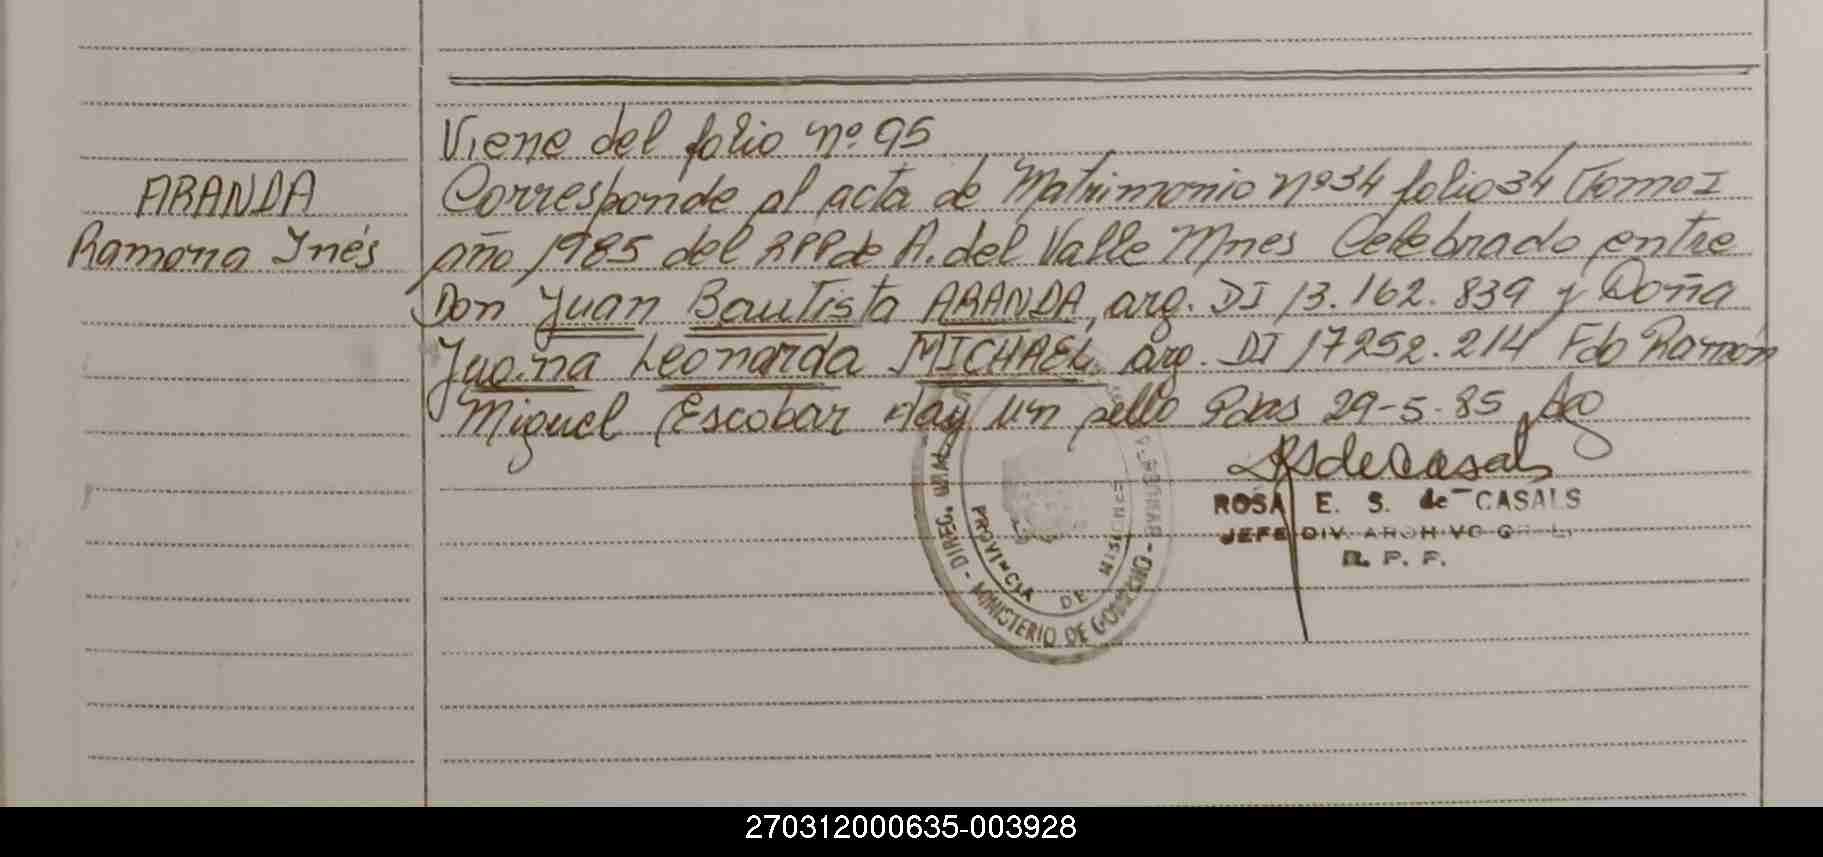 Viene del folio nº 95
ARANDA
Corresponde al acta de Matrimonio nº 34 folio 34 Tomo I
Ramona Inés
año 1985 del RPP de A. del Valle Mnes Celebrado entre
Don Juan Bautista ARANDA, arg. DI 13.162.839 y Doña
Juana Leonarda MICHAEL, arg. DI 17252.214 Fdo Ramón
Miguel Escobar Hay un sello Pdas 29-5-85
RS de Casals
ROSA E. S. de CASALS
JEFE DIV. ARCHIVO GRAL.
R. P. P.
PROVINCIA DE MISIONES
MINISTERIO DE GOBIERNO - DIREC. GRAL.
270312000635-003928